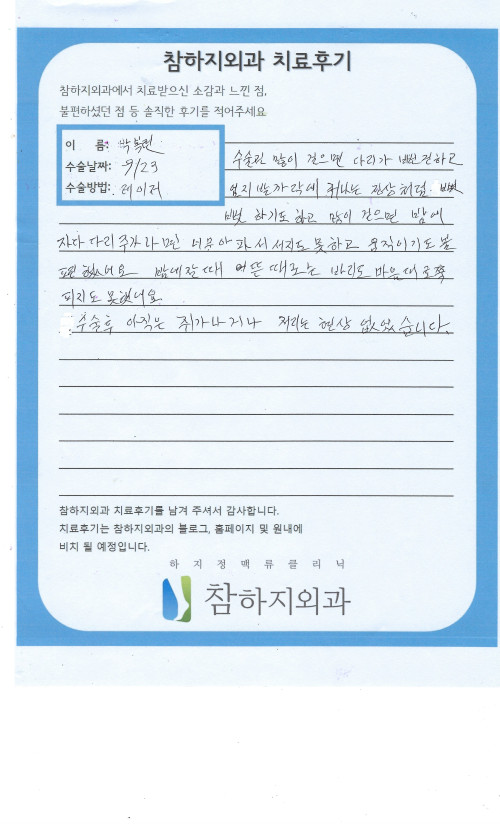 참하지외과 치료후기
참하지외과에서 치료받으신 소감과 느낀 점,
불편하셨던 점 등 솔직한 후기를 적어주세요
이 름: 박
수술날짜: 9/23
수술방법: 레이저
수술전 많이 걸으면 다리가 뻐근하고
엄지 발가락에 쥐나는 현상처럼 뻣
뻣 하기도 하고 많이 걸으면 밤에
자다 다리 쥐가 나면 너무 아파서 서지도 못하고 움직이기도 불
편 했어요 밤에 잘때 어쩐 때로는 다리도 마음대로 쭉
피지도 못했어요
수술후 아직은 쥐가나거나 저리는 현상 없었습니다.
참하지외과 치료후기를 남겨 주셔서 감사합니다.
치료후기는 참하지외과의 블로그, 홈페이지 및 원내에
비치 될 예정입니다.
하지정맥류클리닉
참하지외과